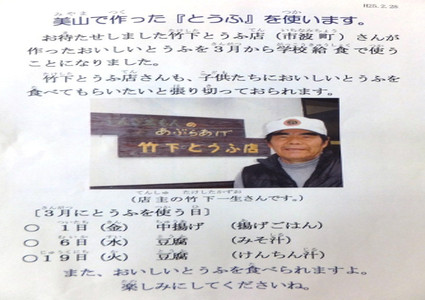 H28.2.26
美山で作った『とうふ』を使います。
お待たせしました竹下とうふ店（市波町）さんが
作ったおいしいとうふを３月から学校給食で使う
ことになりました。
竹下とうふ店さんも、子供たちにおいしいとうふを
食べてもらいたいと張り切っておられます。
あぶらあげ
竹下とうふ店
（店主の竹下一生さんです。）
［３月にとうふを使う日］
○　１日（金）　中揚げ　（揚げごはん）
○　６日（水）　豆腐　（みそ汁）
○１９日（火）　豆腐　（けんちん汁）
また、おいしいとうふを食べられますよ。
楽しみにしてくださいね。